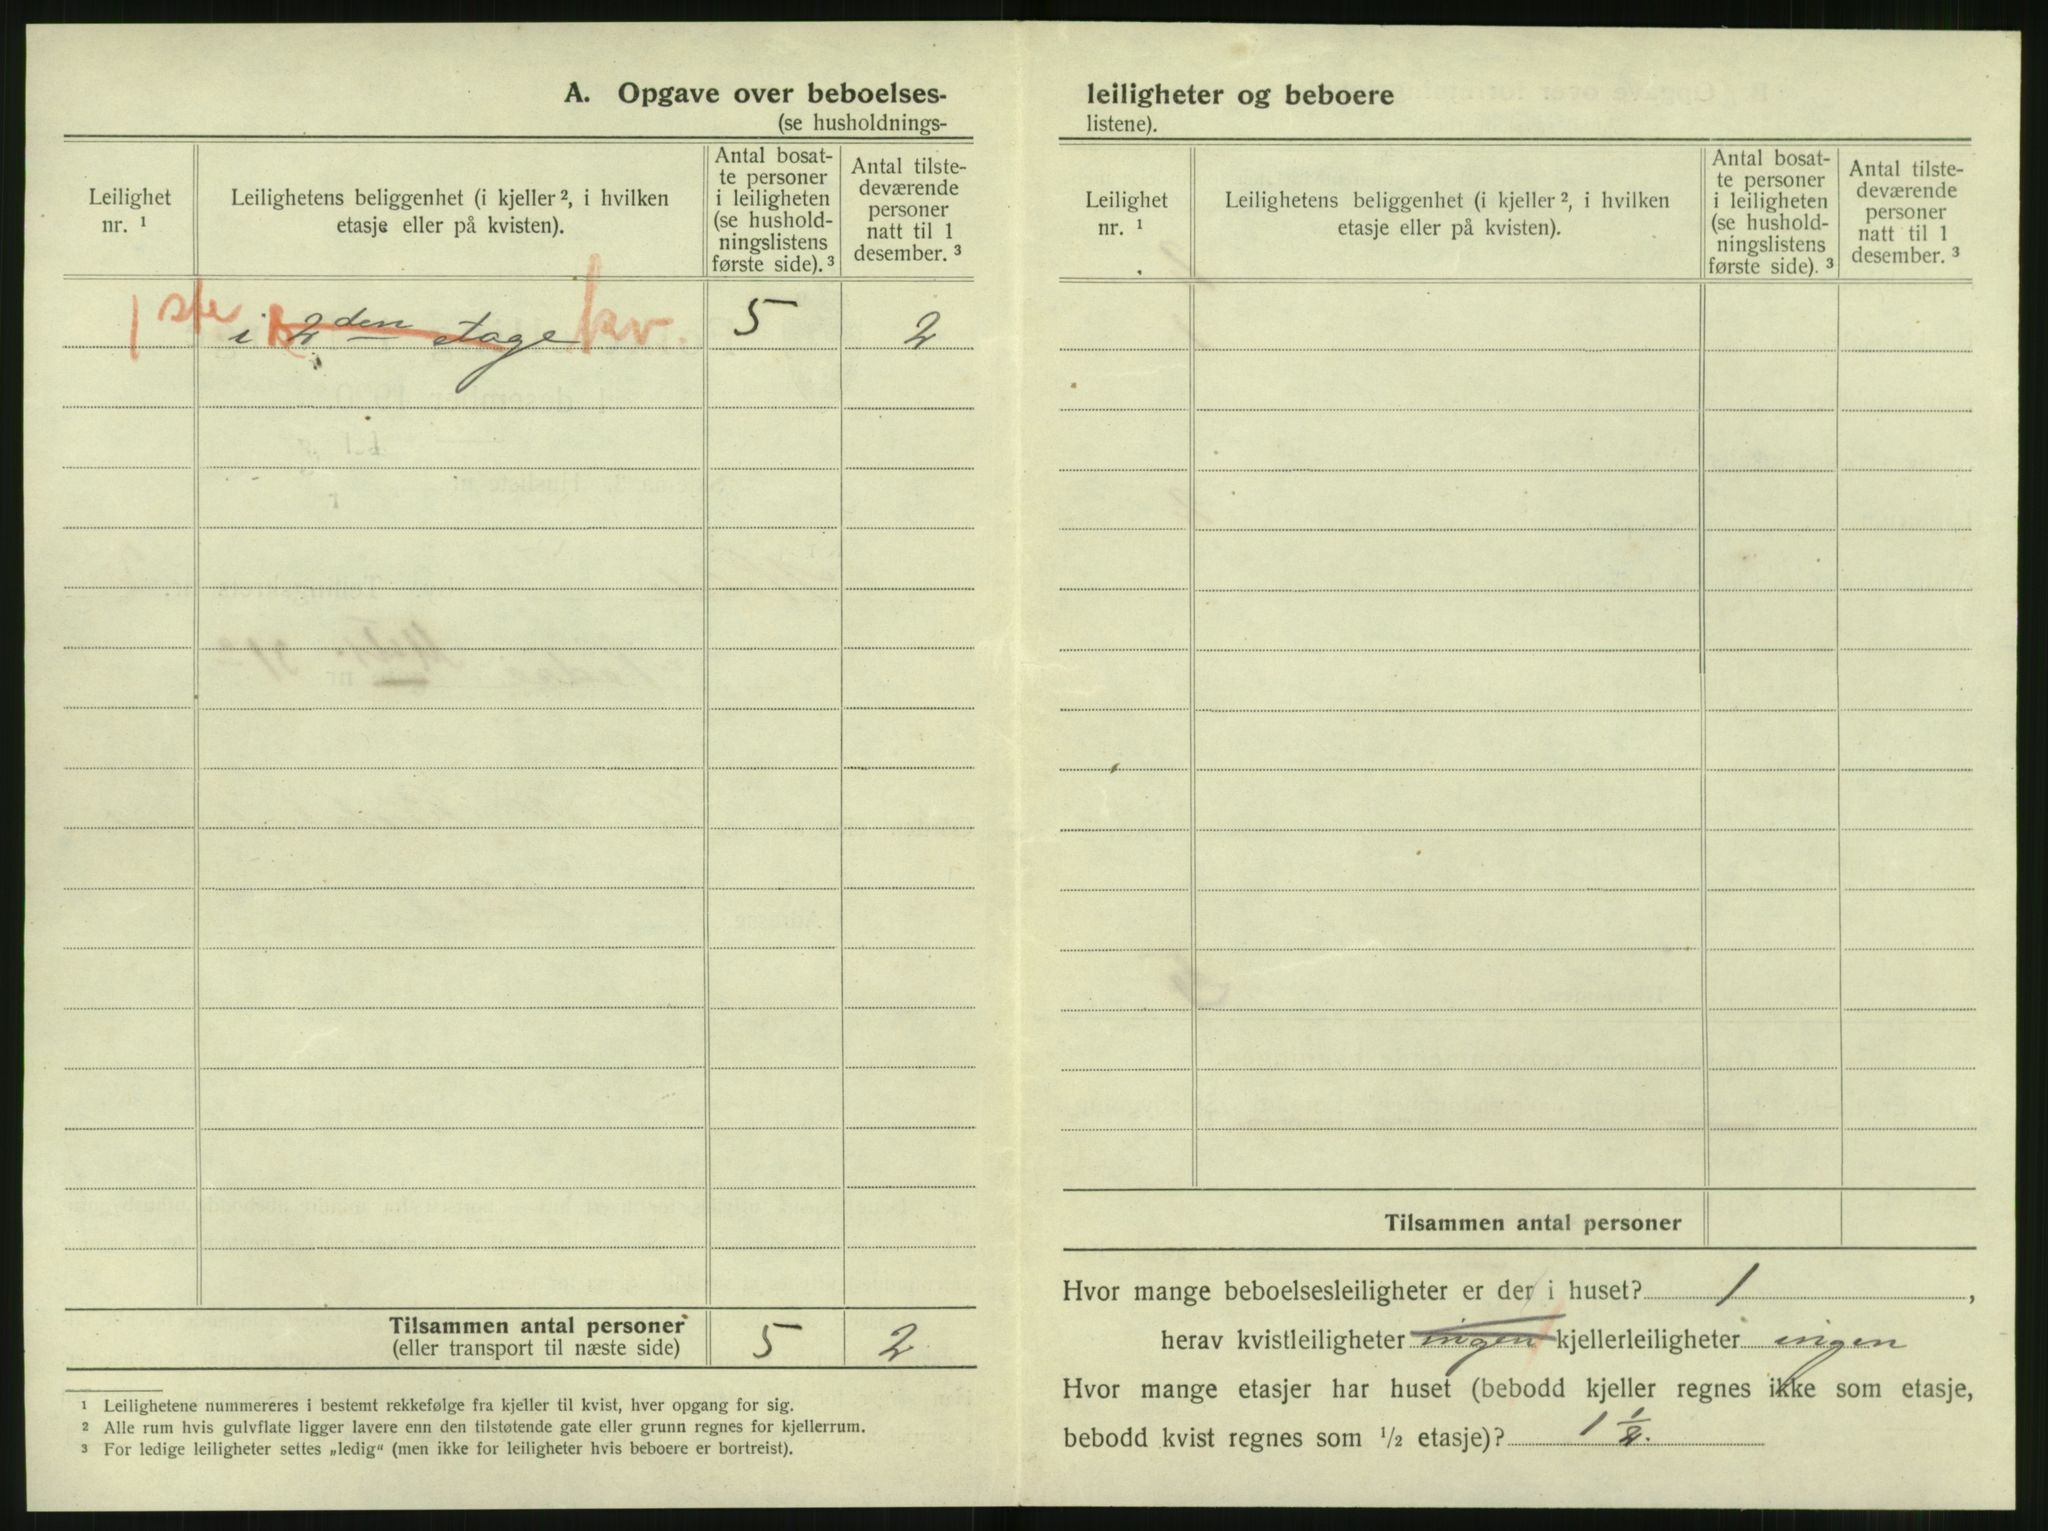 A. Opgave over beboelses-
(se husholdnings-
Leilighet nr. ¹
Leilighetens beliggenhet (i kjeller ², i hvilken
etasje eller på kvisten).
Antal bosat-
te personer
i leiligheten
(se hushold-
ningslistens
første side). ³
Antal tilste-
deværende
personer
natt til 1
desember. ³
1 ste i 2den etage kv. 5 2
Tilsammen antal personer 5 2
(eller transport til næste side)
¹ Leilighetene nummereres i bestemt rekkefølge fra kjeller til kvist, hver opgang for sig.
² Alle rum hvis gulvflate ligger lavere enn den tilstøtende gate eller grunn regnes for kjellerrum.
³ For ledige leiligheter settes „ledig“ (men ikke for leiligheter hvis beboere er bortreist).
leiligheter og beboere
listene).
Leilighet
nr. ¹
Leilighetens beliggenhet (i kjeller ², i hvilken
etasje eller på kvisten).
Antal bosat-
te personer
i leiligheten
(se hushold-
ningslistens
første side). ³
Antal tilste-
deværende
personer
natt til 1
desember. ³
Tilsammen antal personer
Hvor mange beboelsesleiligheter er der i huset? 1 ,
herav kvistleiligheter ingen kjellerleiligheter ingen
Hvor mange etasjer har huset (bebodd kjeller regnes ikke som etasje,
bebodd kvist regnes som ½ etasje)? 1 ½.